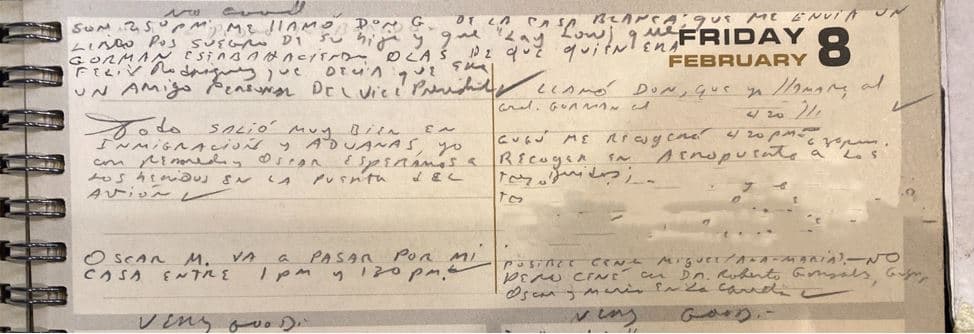 NO Good
SON 250 PM. ME LLAMÓ DON G. DE LA CASA BLANCA; QUE ME ENVIA UN
LINDO POS SUEGRO DE SU hija y que "Lay Low", que
GORMAN ESTABA HACIENDO OLAS DE QUE QUIEN ERA
FELIX Rodriguez, que DECIA QUE ERA
UN AMIGO PERSONAL DEL Vice Presidente
Todo SALIÓ MUY BIEN EN
INMIGRACION y ADUANAS, yo
con y OSCAR ESPERAMOS A
LOS hERIDOS EN LA PUERTA DEL
AVIÓN
OSCAR M. VA A PASAR POR MI
CASA ENTRE 1 PM y 130 PM.
VERY GOOD.-
FRIDAY 8
FEBRUARY
LLAMÓ DON, QUE yo llamara al
Gral. GORMAN al 420
GUGÚ ME RECOGERÁ 420 PM
RECOGER EN AEROPUERTO A LOS
heridos;
POSIBLE CENA MIGUEL/ANA-MARIA).- NO
PERO CENÉ con DR. Roberto Gonzalez, Gugu,
OSCAR y MARIO EN LA Carreta
VERY GOOD.-